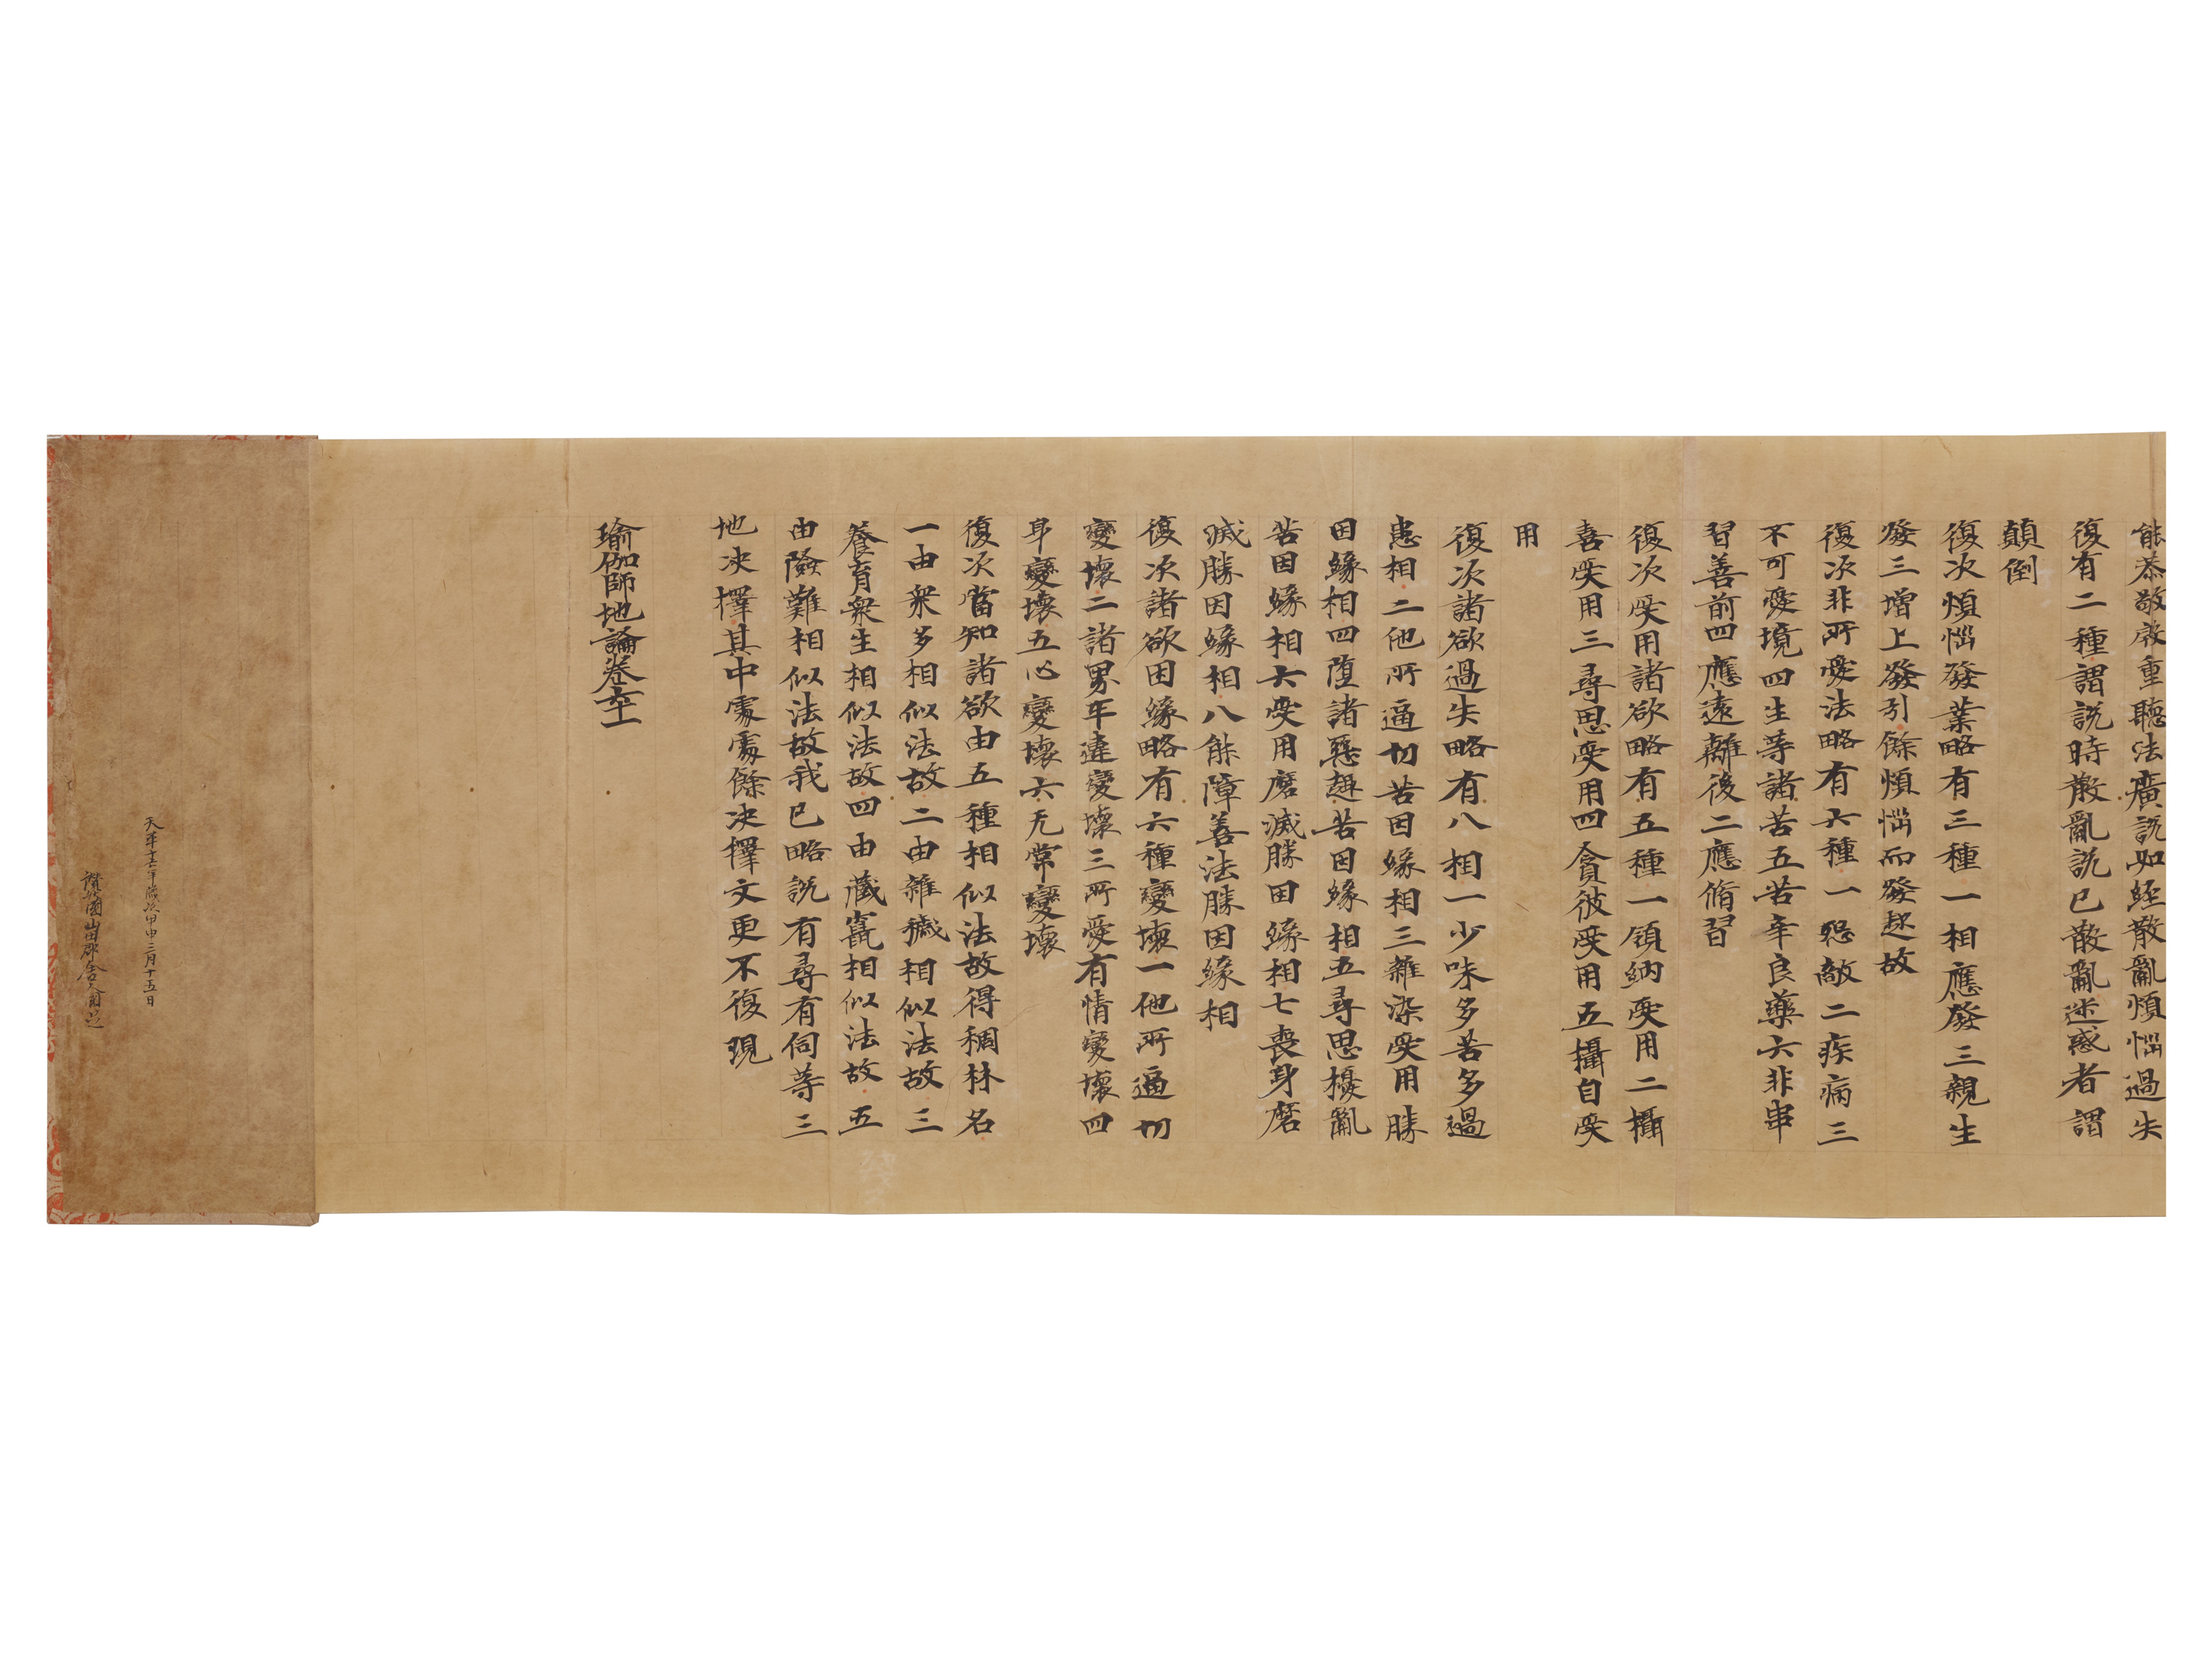 能恭敬啟重聽法廣說如經散亂煩惱過失
復有二種謂說時散亂說已散亂迷惑者謂
顛倒
復次煩惱發業略有三種一相應發三親生
發三增上發引餘煩惱而發起故
復次非所愛法略有六種一怨敵二疾病三
不可愛境四生等諸苦五苦辛良藥六非串
習善前四應遠離後二應脩習
復次受用諸欲略有五種一領納受用二攝
善受用三尋思受用四貪彼受用五攝自受
用
復次諸欲過失略有八相一少味多苦多過
患相二他所逼切苦因緣相三雜染受用勝
因緣相四墮諸惡趣苦因緣相五尋思擾亂
苦因緣相六受用磨滅勝因緣相七喪身磨
滅勝因緣相八能障善法勝因緣相
復次諸欲因緣略有六種變壞一他所逼切
變壞二諸界年違變壞三所愛有情變壞四
身變壞五心變壞六无常變壞
復次當知諸欲由五種相似法故得稠林名
一由衆多相似法故二由雜穢相似法故三
養育衆生相似法故四由藏竄相似法故五
由險難相似法故我已略說有尋有伺等三
地決擇其中處處餘決擇文更不復現
瑜伽師地論卷六十一
天平十六年歲次甲申三月十五日
讚岐國山田郡舍人